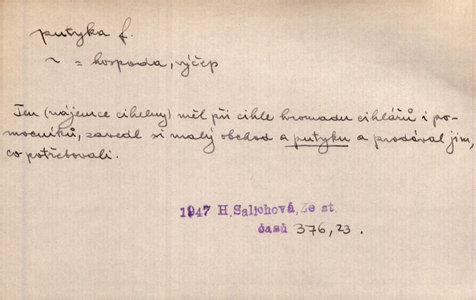 putyka f.
~ = hospoda, výčep
Ten (nájemce cihelny) měl při cihle hromadu cihlářů i po-
mocníků, zavedl si malý obchod a putyku a prodával jim,
co potřebovali.
1947 H. Salichová, Ze st.
časů 376, 23.